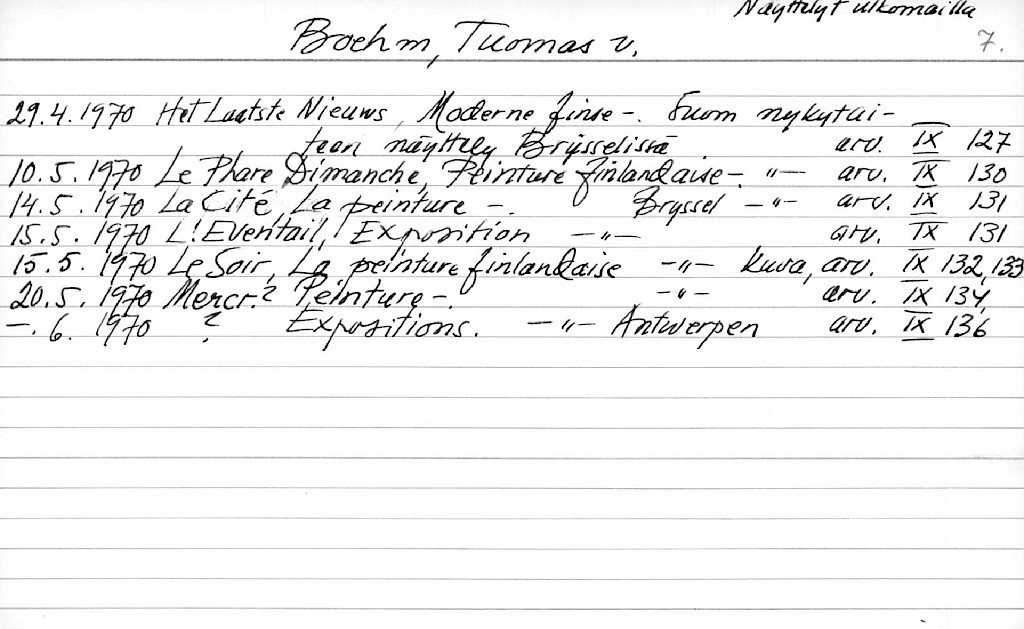 Näyttelyt ulkomailla
Boehm, Tuomas v.
7.
29.4.1970 Het Laatste Nieuws, Moderne finse -. Suom nykytai-
teen näyttely Brysselissä arv. IX 127
10.5.1970 Le Phare Dimanche, Peinture finlandaise -. -"- arv. IX 130
14.5.1970 La Cité, La peinture -. Bryssel -"- arv. IX 131
15.5.1970 L'Eventail, Exposition -"- arv. IX 131
15.5.1970 Le Soir, La peinture finlandaise -"- kuva, arv. IX 132,133
20.5.1970 Mercr.? Peinture -. -"- arv. IX 134
-.6.1970 ? Expositions. -"- Antwerpen arv. IX 136